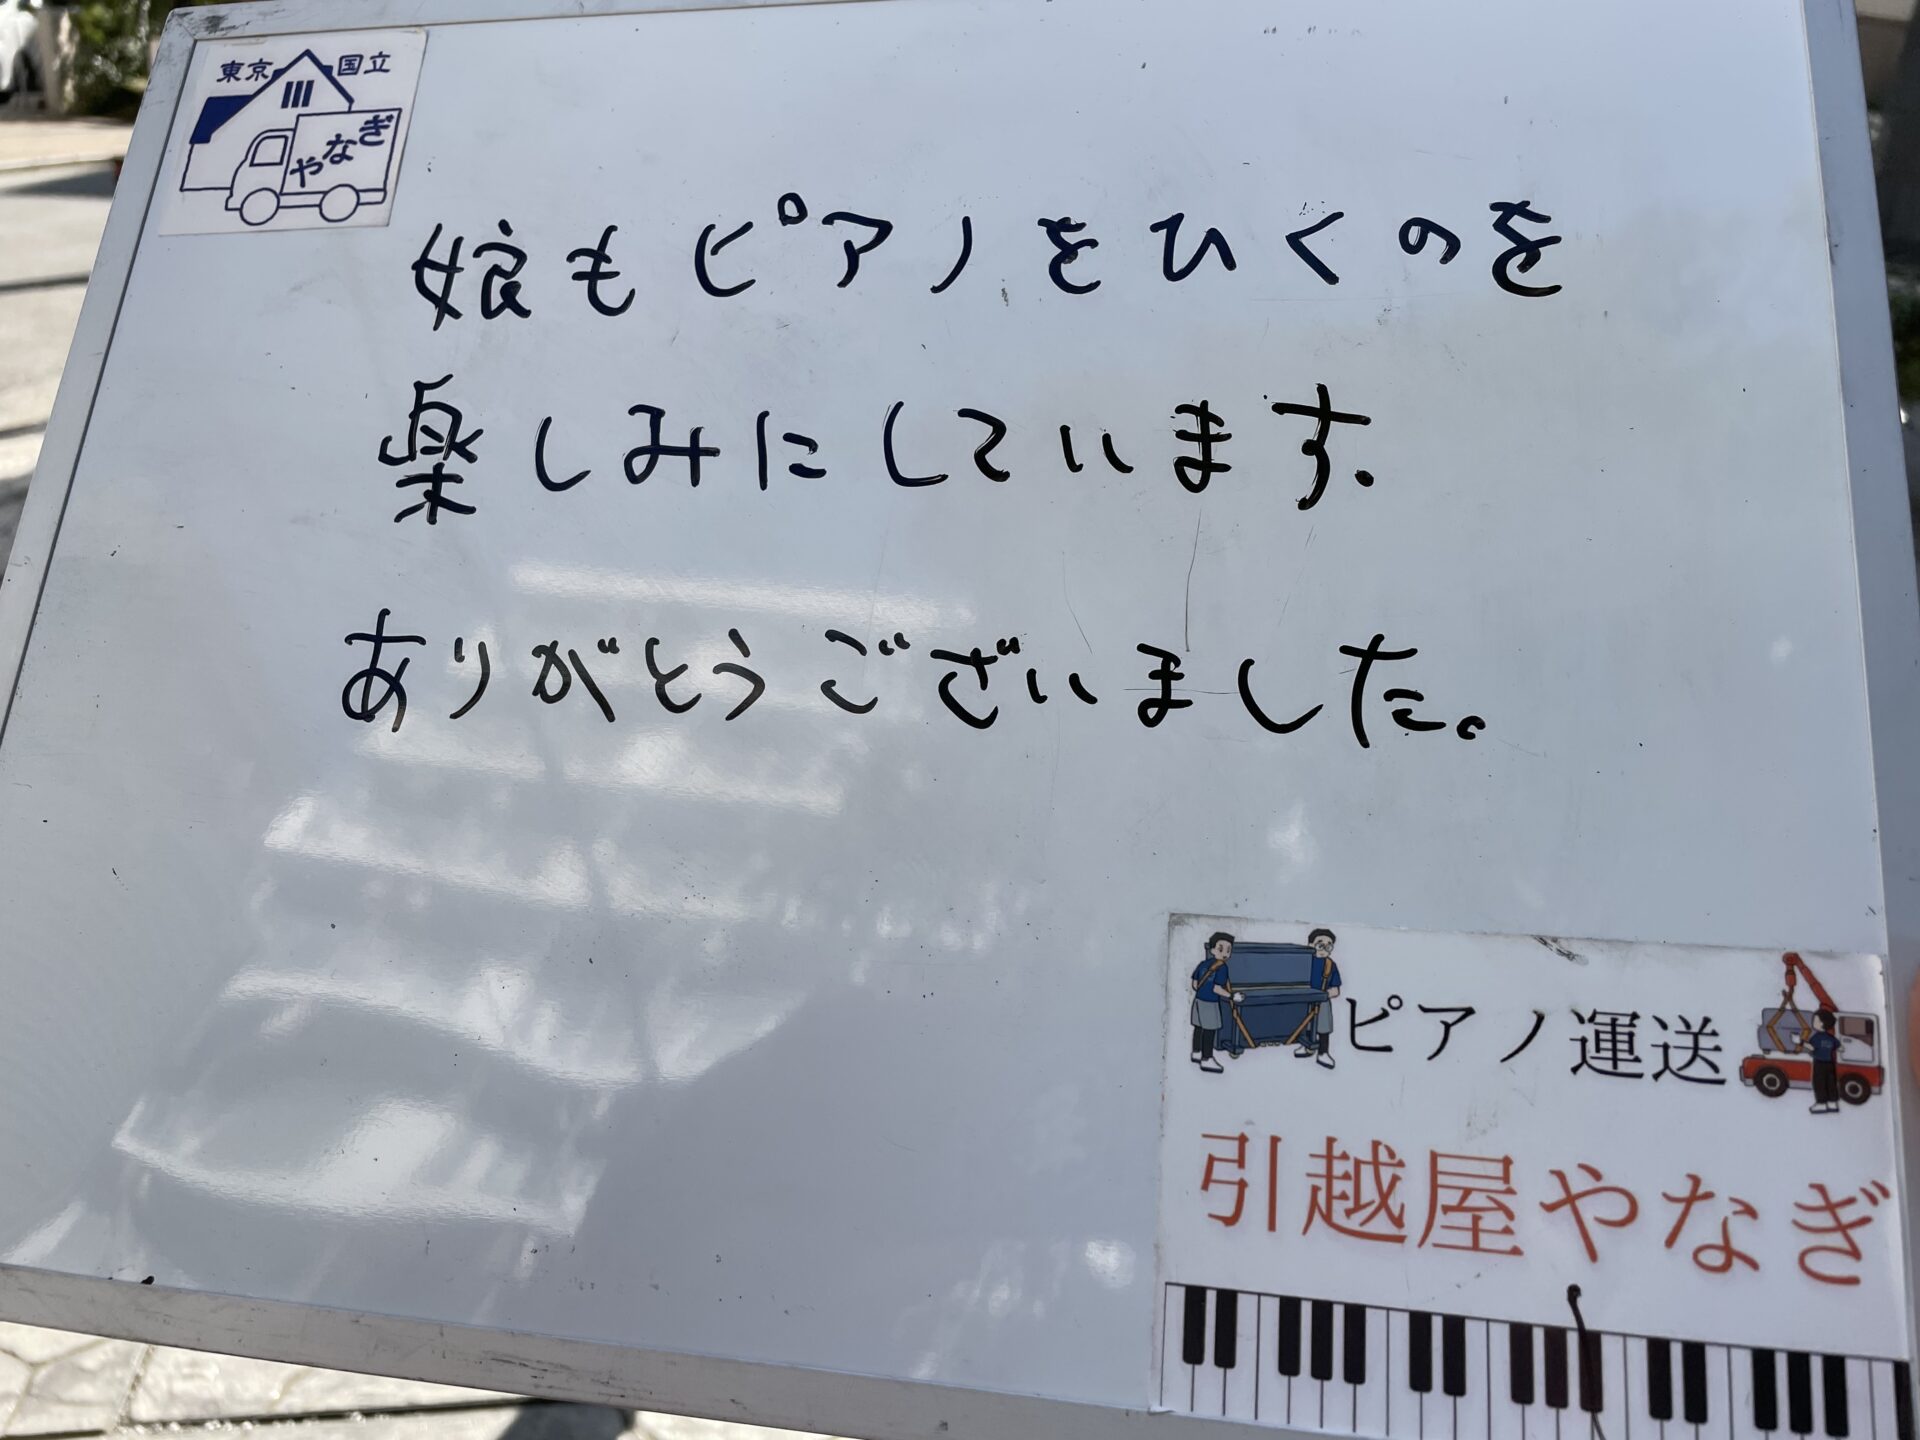 東京 国立
やなぎ
娘もピアノをひくのを
楽しみにしています.
ありがとうございました。
ピアノ運送
引越屋やなぎ